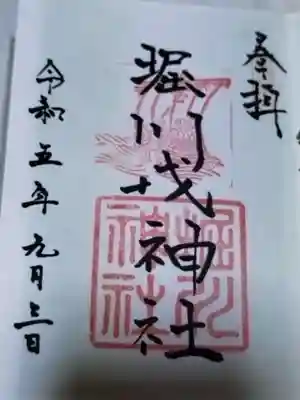 奉拝
堀川戎神社
令和五年九月三日
堀川
神社